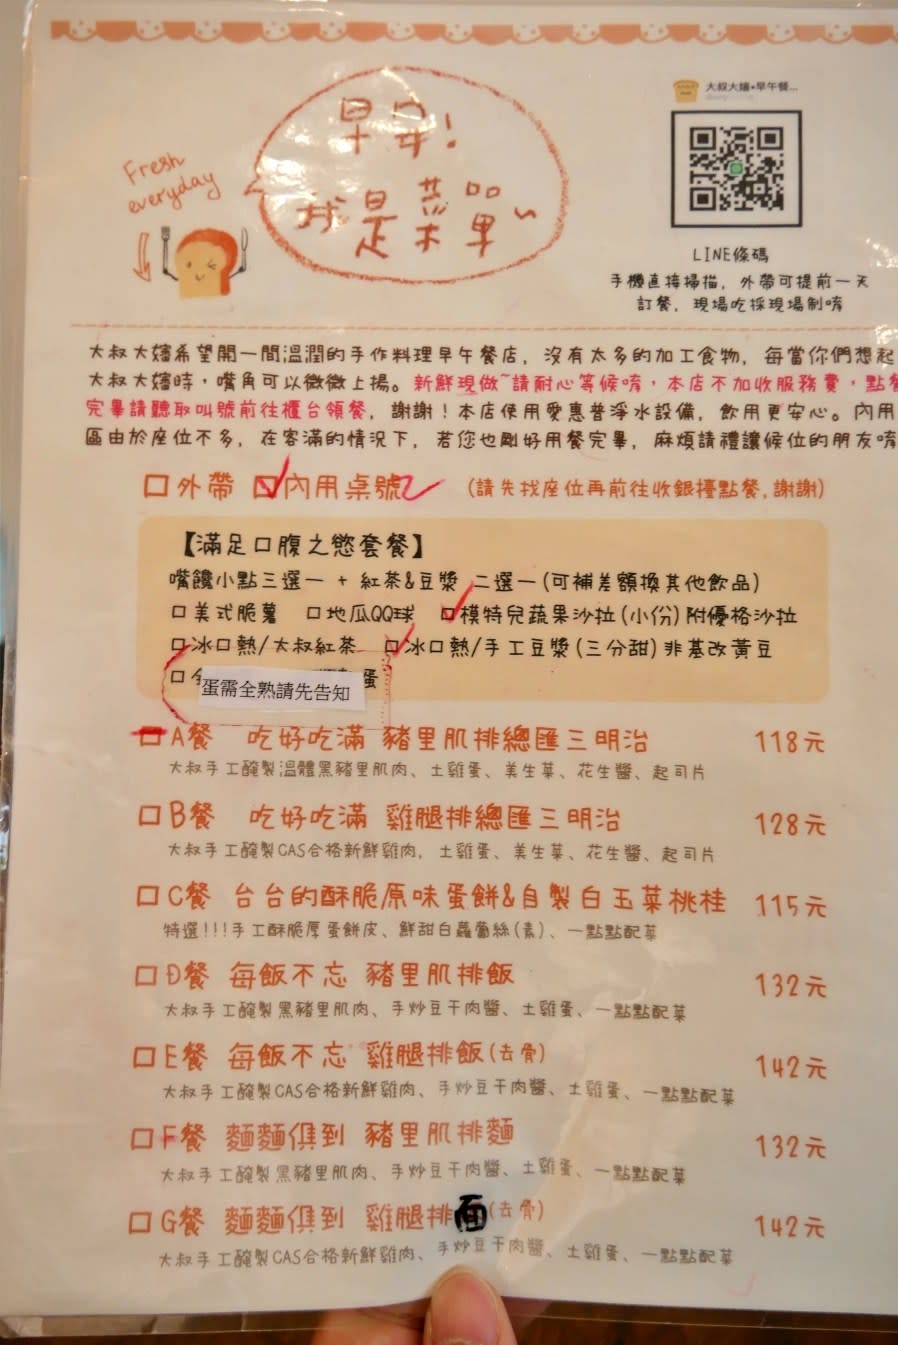 大叔大嬸•早午餐...
Fresh
everyday
早安!
我是菜單~
LINE條碼
手機直接掃描, 外帶可提前一天
訂餐, 現場吃採現場制唷
大叔大嬸希望開一間溫潤的手作料理早午餐店, 沒有太多的加工食物, 每當你們想起
大叔大嬸時，嘴角可以微微上揚。新鮮現做~請耐心等候唷，本店不加收服務費，點餐
完畢請聽取叫號前往櫃台領餐，謝謝！本店使用愛惠普淨水設備, 飲用更安心。內用
區由於座位不多, 在客滿的情況下, 若您也剛好用餐完畢, 麻煩請禮讓候位的朋友唷
□外帶 □內用桌號 (請先找座位再前往收銀檯點餐,謝謝)
【滿足口腹之慾套餐】
嘴饞小點三選一 + 紅茶&豆漿 二選一(可補差額換其他飲品)
□美式脆薯 □地瓜QQ球 □模特兒蔬果沙拉(小份)附優格沙拉
□冰□熱/大叔紅茶 □冰□熱/手工豆漿(三分甜)非基改黃豆
□ 蛋
蛋需全熟請先告知
□A餐 吃好吃滿 豬里肌排總匯三明治 118元
大叔手工醃製溫體黑豬里肌肉、土雞蛋、美生菜、花生醬、起司片
□B餐 吃好吃滿 雞腿排總匯三明治 128元
大叔手工醃製CAS合格新鮮雞肉, 土雞蛋、美生菜、花生醬、起司片
□C餐 台台的酥脆原味蛋餅&自製白玉菜桃桂 115元
特選!!!手工酥脆厚蛋餅皮、鮮甜白蘿蔔絲(素)、一點點配菜
□D餐 每飯不忘 豬里肌排飯 132元
大叔手工醃製黑豬里肌肉、手炒豆干肉醬、土雞蛋、一點點配菜
□E餐 每飯不忘 雞腿排飯(去骨) 142元
大叔手工醃製CAS合格新鮮雞肉、手炒豆干肉醬、土雞蛋、一點點配菜
□F餐 麵麵俱到 豬里肌排麵 132元
大叔手工醃製黑豬里肌肉、手炒豆干肉醬、土雞蛋、一點點配菜
□G餐 麵麵俱到 雞腿排面(去骨) 142元
大叔手工醃製CAS合格新鮮雞肉、手炒豆干肉醬、土雞蛋、一點點配菜